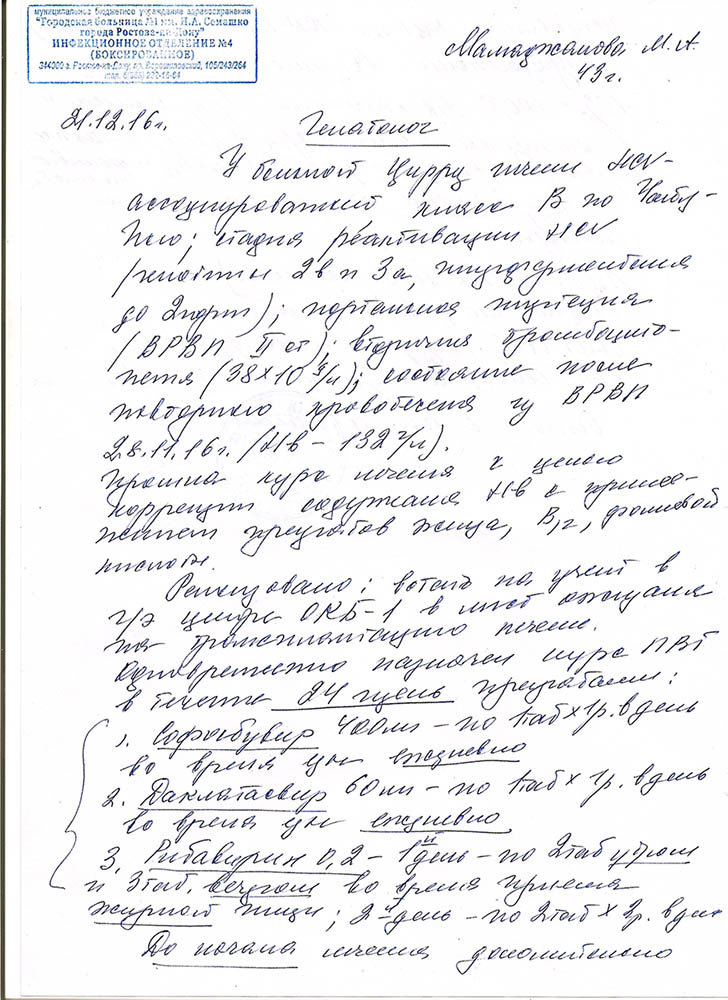 муниципальное бюджетное учреждение здравоохранения
"Городская больница №1 им. Н.А. Семашко
города Ростова-на-Дону"
ИНФЕКЦИОННОЕ ОТДЕЛЕНИЕ №4
(БОКСИРОВАННОЕ)
344000 г. Ростов-на-Дону, пр. Ворошиловский, 105/243/264
Мамаджанова М.А.
43 г.
21.12.16г.
Гепатолог
У больной Цирроз печени HCV-
ассоциированный класс В по Чайлд-
Пью; стадия реактивации HCV
(генотип 2в и 3а, гиперферментемия
до 2 норм); портальная гипертензия
(ВРВП II ст); вторичная тромбоцито-
пения (38×10⁹/л); состояние после
повторного кровотечения из ВРВП
28.11.16г. (Нв – 132 г/л).
Прошла курс лечения с целью
коррекции содержания Нв с приме-
нением препаратов железа, В12, фолиевой
кислоты.
Рекомендовано: встать на учет в
г/э центр ОКБ-1 в лист ожидания
на трансплантацию печени.
Одновременно назначен курс ПВТ
в течение 24 недель препаратами:
1. Софосбувир 400мг – по 1таб × 1р. в день
во время еды ежедневно
2. Даклатасвир 60мг – по 1таб × 1р. в день
во время еды ежедневно
3. Рибавирин 0,2 – 1й день – по 2таб утром
и 3таб. вечером во время приема
жирной пищи; 2й день – по 2таб × 2р. в день
До начала лечения дополнительно